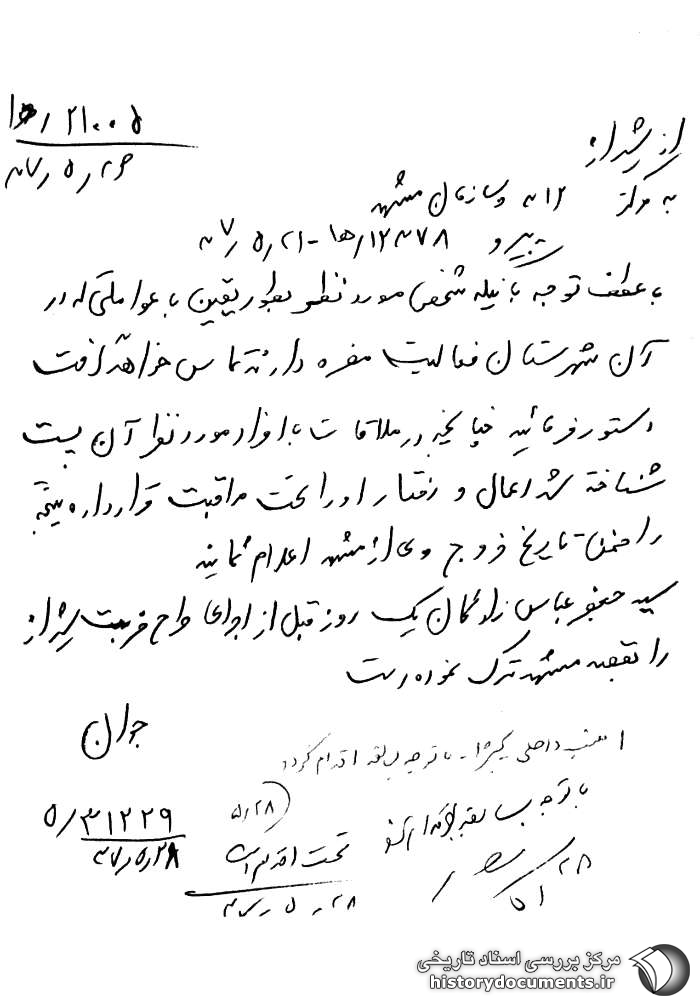 ۲۱۰۰۵ / ه‍ ا
۴۷/۵/۲۶
از شیراز
به مرکز ۳۱۲ وسازمان مشهد
پیرو ۱۲۴۷۸/ه‍ا - ۴۷/۵/۲۱
با عطف توجه باینکه شخص مورد نظر بطور یقین با عواملی که در
آن شهرستان فعالیت مضره دارند تماس خواهد گرفت
دستور فرمائید چنانچه در ملاقات با افراد مورد نظر آن
شناخته شد اعمال و رفتار او را تحت مراقبت قرار داده نتیجه
را ضمن تاریخ خروج وی از مشهد اعلام نمایند
سید جعفر عباس زادگان یک روز قبل از اجرای طرح ضربت شیراز
را بقصد مشهد ترک نموده است
جوان
امنیت داخلی با توجه بسابقه اقدام گردد
۵/۲۸
با توجه بسابقه اقدام
۵/۲۸
۵/۳۱۲۲۹
۴۷/۵/۲۸
تحت اقدام است
۴۷/۵/۲۸
مرکز بررسی اسناد تاریخی
historydocuments.ir